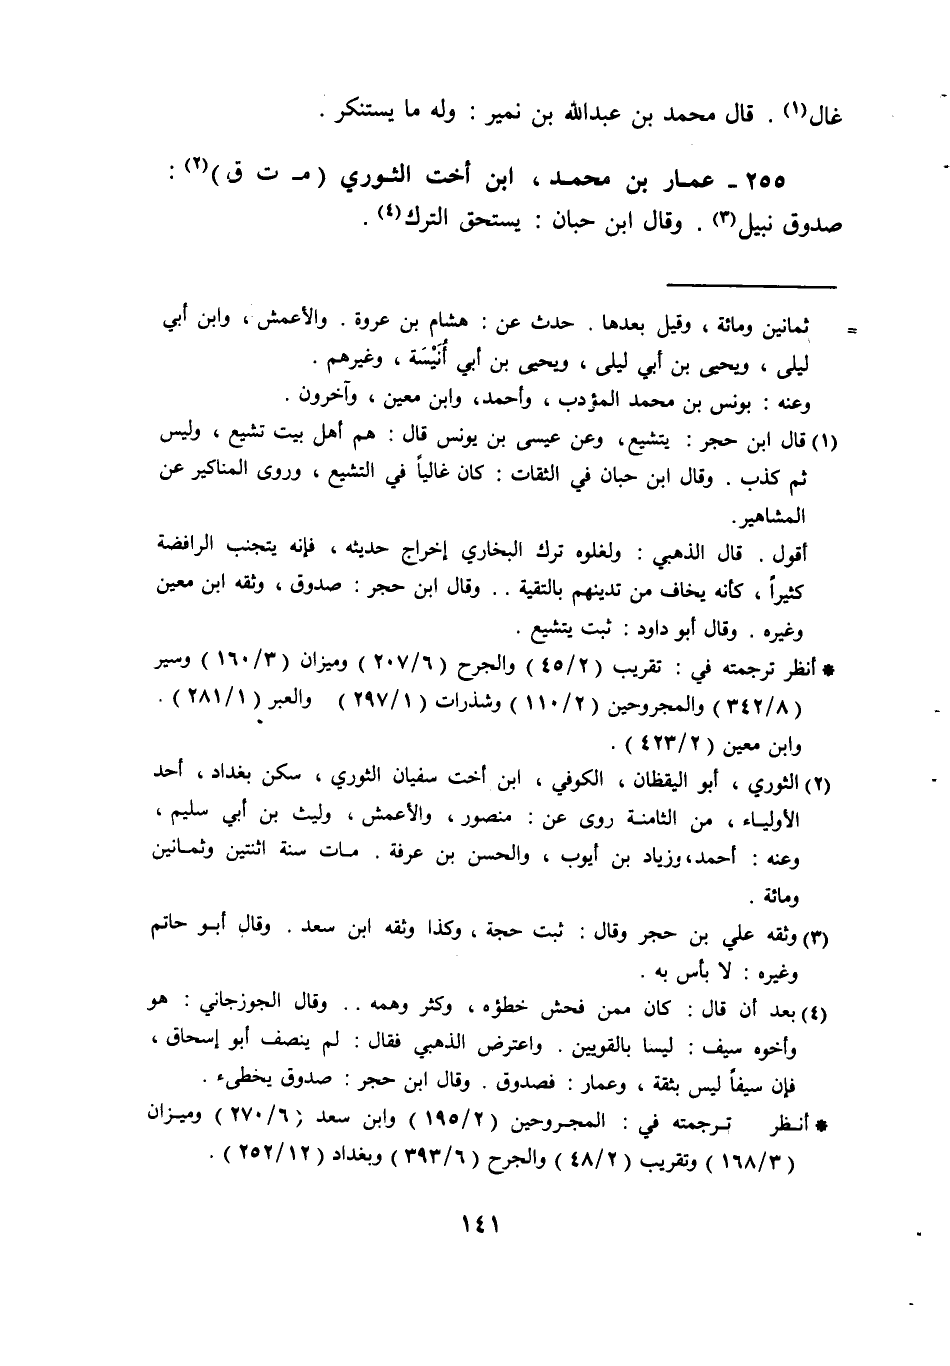 غال(١) . قال محمد بن عبدالله بن نمير : وله ما يستنكر .
٢٥٥ ـ عمـار بن محمـد ، ابن أخت الثـوري ( مـ ت ق )(٢) :
صدوق نبيل(٣) . وقال ابن حبان : يستحق الترك(٤) .
= ثمانين ومائة ، وقيل بعدها . حدث عن : هشام بن عروة . والأعمش ، وابن أبي
ليلى ، ويحيى بن أبي ليلى ، ويحيى بن أبي أُنَيْسَة ، وغيرهم .
وعنه : يونس بن محمد المؤدب ، وأحمد، وابن معين ، وآخرون .
(١) قال ابن حجر : يتشيع، وعن عيسى بن يونس قال : هم أهل بيت تشيع ، وليس
ثم كذب . وقال ابن حبان في الثقات : كان غالياً في التشيع ، وروى المناكير عن
المشاهير.
أقول . قال الذهبي : ولغلوه ترك البخاري إخراج حديثه ، فإنه يتجنب الرافضة
كثيراً ، كأنه يخاف من تدينهم بالتقية . . وقال ابن حجر : صدوق ، وثقه ابن معين
وغيره . وقال أبو داود : ثبت يتشيع .
* أنظر ترجمته في : تقريب ( ٤٥/٢ ) والجرح ( ٢٠٧/٦ ) وميزان ( ١٦٠/٣ ) وسير
( ٣٤٢/٨ ) والمجروحين ( ١١٠/٢ ) وشذرات ( ٢٩٧/١ ) والعبر ( ٢٨١/١ ) .
وابن معين ( ٤٢٣/٢ ) .
(٢) الثوري ، أبو اليقظان ، الكوفي ، ابن أخت سفيان الثوري ، سكن بغداد ، أحد
الأوليـاء ، من الثامنـة روى عن : منصور ، والأعمش ، وليث بن أبي سليم ،
وعنه : أحمد، وزياد بن أيوب ، والحسن بن عرفة . مـات سنة اثنتين وثمـانين
ومائة .
(٣) وثقه علي بن حجر وقال : ثبت حجة ، وكذا وثقه ابن سعد . وقال أبـو حاتم
وغيره : لا بأس به .
(٤) بعد أن قال : كان ممن فحش خطؤه ، وكثر وهمه . . وقال الجوزجاني : هو
وأخوه سيف : ليسا بالقويين . واعترض الذهبي فقال : لم ينصف أبو إسحاق ،
فإن سيفاً ليس بثقة ، وعمار : فصدوق . وقال ابن حجر : صدوق يخطىء .
* أنـظر تـرجمته في : المجـروحين ( ١٩٥/٢ ) وابن سعد ( ٢٧٠/٦ ) وميـزان
( ١٦٨/٣ ) وتقريب ( ٤٨/٢ ) والجرح ( ٣٩٣/٦ ) وبغداد ( ٢٥٢/١٢ ) .
١٤١